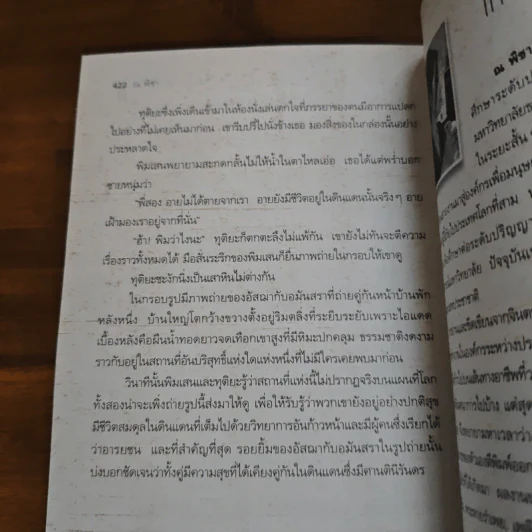 422 ณ พิชา
ทุติยะซึ่งเพิ่งเดินเข้ามาในห้องนั่งเล่นตกใจที่ภรรยาของตนมีอาการแปลก
ไปอย่างที่ไม่เคยเห็นมาก่อน เขารีบปรี่ไปนั่งข้างเธอ มองสิ่งของในกล่องนั้นอย่าง
ประหลาดใจ
พิมเสนพยายามสะกดกลั้นไม่ให้น้ำในตาไหลเอ่อ เธอได้แต่พร่ำบอก
ชายหนุ่มว่า
"พี่สอง อายไม่ได้ตายจากเรา อายยังมีชีวิตอยู่ในดินแดนนั้นจริงๆ อาย
เฝ้ามองเราอยู่จากที่นั่น"
"ฮ้า! พิมว่าไงนะ" ทุติยะก็ตกตะลึงไม่แพ้กัน เขายังไม่ทันจะตีความ
เรื่องราวทั้งหมดได้ มือสั่นระริกของพิมเสนก็ยื่นภาพถ่ายในกรอบให้เขาดู
ทุติยะชะงักนิ่งเป็นเสาหินไม่ต่างกัน
ในกรอบรูปมีภาพถ่ายของอัสฌากับอมันสราที่ถ่ายคู่กันหน้าบ้านพัก
หลังหนึ่ง บ้านใหญ่โตกว้างขวางตั้งอยู่ริมตลิ่งที่ระยิบระยับเพราะไอแดด
เบื้องหลังคือผืนน้ำทอดยาวจดเทือกเขาสูงที่มีหิมะปกคลุม ธรรมชาติงดงาม
ราวกับอยู่ในสถานที่อันบริสุทธิ์แห่งใดแห่งหนึ่งที่ไม่มีใครเคยพบมาก่อน
วินาทีนั้นพิมเสนและทุติยะรู้ว่าสถานที่แห่งนี้ไม่ปรากฏจริงบนแผนที่โลก
ทั้งสองน่าจะเพิ่งถ่ายรูปนี้ส่งมาให้ดู เพื่อให้รับรู้ว่าพวกเขายังอยู่อย่างปกติสุข
มีชีวิตสมดุลในดินแดนที่เต็มไปด้วยวิทยาการอันก้าวหน้าและมีผู้คนซึ่งเรียกได้
ว่าอารยชน และที่สำคัญที่สุด รอยยิ้มของอัสฌากับอมันสราในรูปถ่ายนั้น
บ่งบอกชัดเจนว่าทั้งคู่มีความสุขที่ได้เคียงคู่กันในดินแดนซึ่งมีตานตินิรันดร
ณ พิชา
ศึกษาระดับป
มหาวิทยาลัย
ในระยะสั้น
องค์กรเพื่อมนุษย
ประเทศโลกที่สาม
ต่อระดับปริญญา
มหาวิทยาลัย ปัจจุบัน